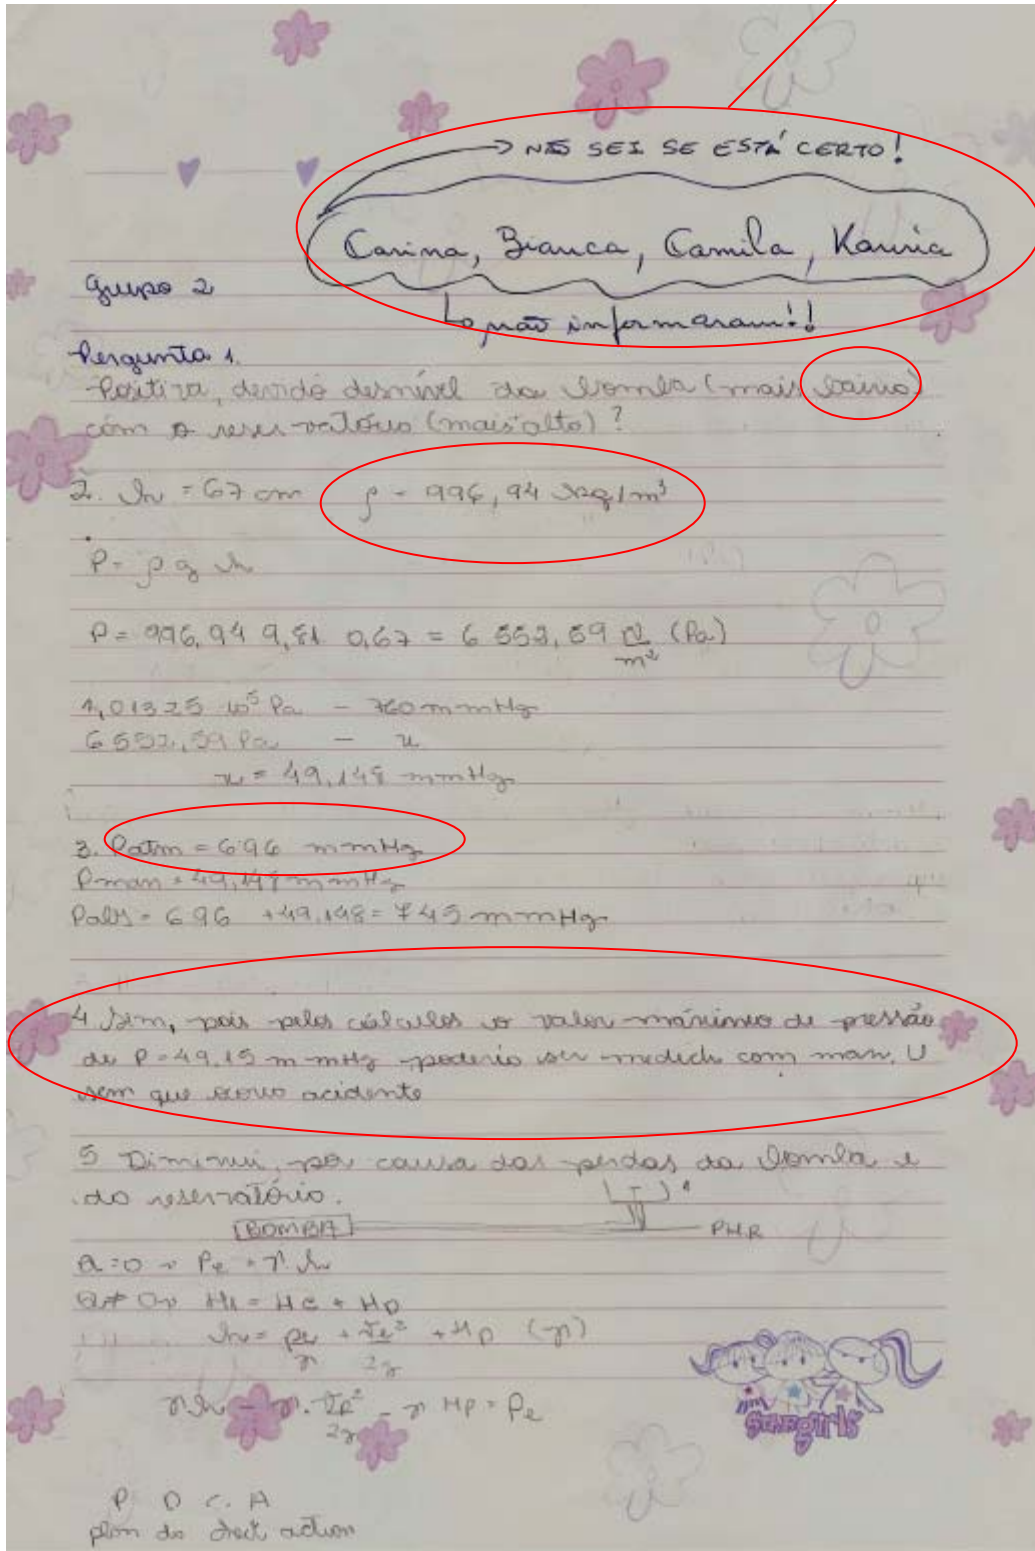 → NÃO SEI SE ESTÁ CERTO!
Carina, Bianca, Camila, Kauria
Grupo 2
↳ não informaram!!
Pergunta 1.
Positiva, devido desnível da bomba (mais baixo)
com o reservatório (mais alto)?
2. h = 67 cm ρ = 996,94 kg/m³
P = ρ g h
P = 996,94 9,81 0,67 = 6 552,59 N/m² (Pa)
1,01325 10⁵ Pa - 760 mmHg
6552,59 Pa - x
x = 49,148 mmHg
3. Patm = 696 mmHg
Pman = 49,148 mmHg
Pabs = 696 + 49,148 = 745 mmHg
4 Sim, pois pelos cálculos o valor máximo de pressão
de P = 49,15 mmHg poderia ser medido com man. U
sem que acidente
5 Diminui, por causa das perdas da bomba e
do reservatório.
BOMBA PHR
Q=0 → Pe = γ h
Q≠0 → H1 = He + Hp
h = pe/γ + ve²/2g + Hp (γ)
γh - γ. ve²/2g - γ Hp = Pe
P D C. A
plan do check action